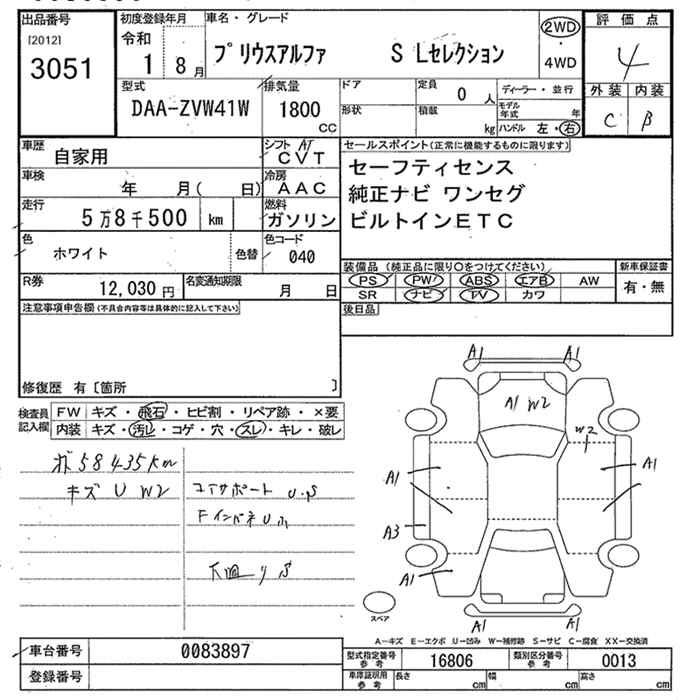 出品番号
[2012]
3051
初度登録年月
令和
1 8月
車名・グレード
プリウスアルファ S Lセレクション
2WD
・
4WD
評価点
4
外装 内装
C B
型式
DAA-ZVW41W
排気量
1800
CC
ドア
形状
定員
0 人
積載
kg
ディーラー・並行
モデル年式 年
ハンドル 左・右
車歴
自家用
シフト AT
CVT
車検
年 月( 日)
冷房
AAC
走行
5万8千500 km
燃料
ガソリン
色
ホワイト
色替
色コード
040
R券
12,030円
名変通知期限
月 日
セールスポイント(正常に機能するものに限ります)
セーフティセンス
純正ナビ ワンセグ
ビルトインETC
装備品(純正品に限り○をつけてください)
PS PW ABS エアB AW
SR ナビ TV カワ
新車保証書
有・無
後日品
注意事項申告欄(不具合内容等は具体的に記入して下さい)
修復歴 有〔箇所 〕
検査員
記入欄
FW キズ・飛石・ヒビ割・リペア跡・×要
内装 キズ・汚れ・コゲ・穴・スレ・キレ・破レ
58435km
キズ U W2
コアサポート U.S
FインパネUふ
下廻りS
A1 A1
A1 W2
W2
A1 A1
A3
A1
A1 A1
スペア
A―キズ E―エクボ U―凹み W―補修跡 S―サビ C―腐食 XX―交換済
車台番号
0083897
登録番号
型式指定番号
参考
16806
類別区分番号
参考
0013
車庫証明用
参考
長さ cm
幅 cm
高さ cm